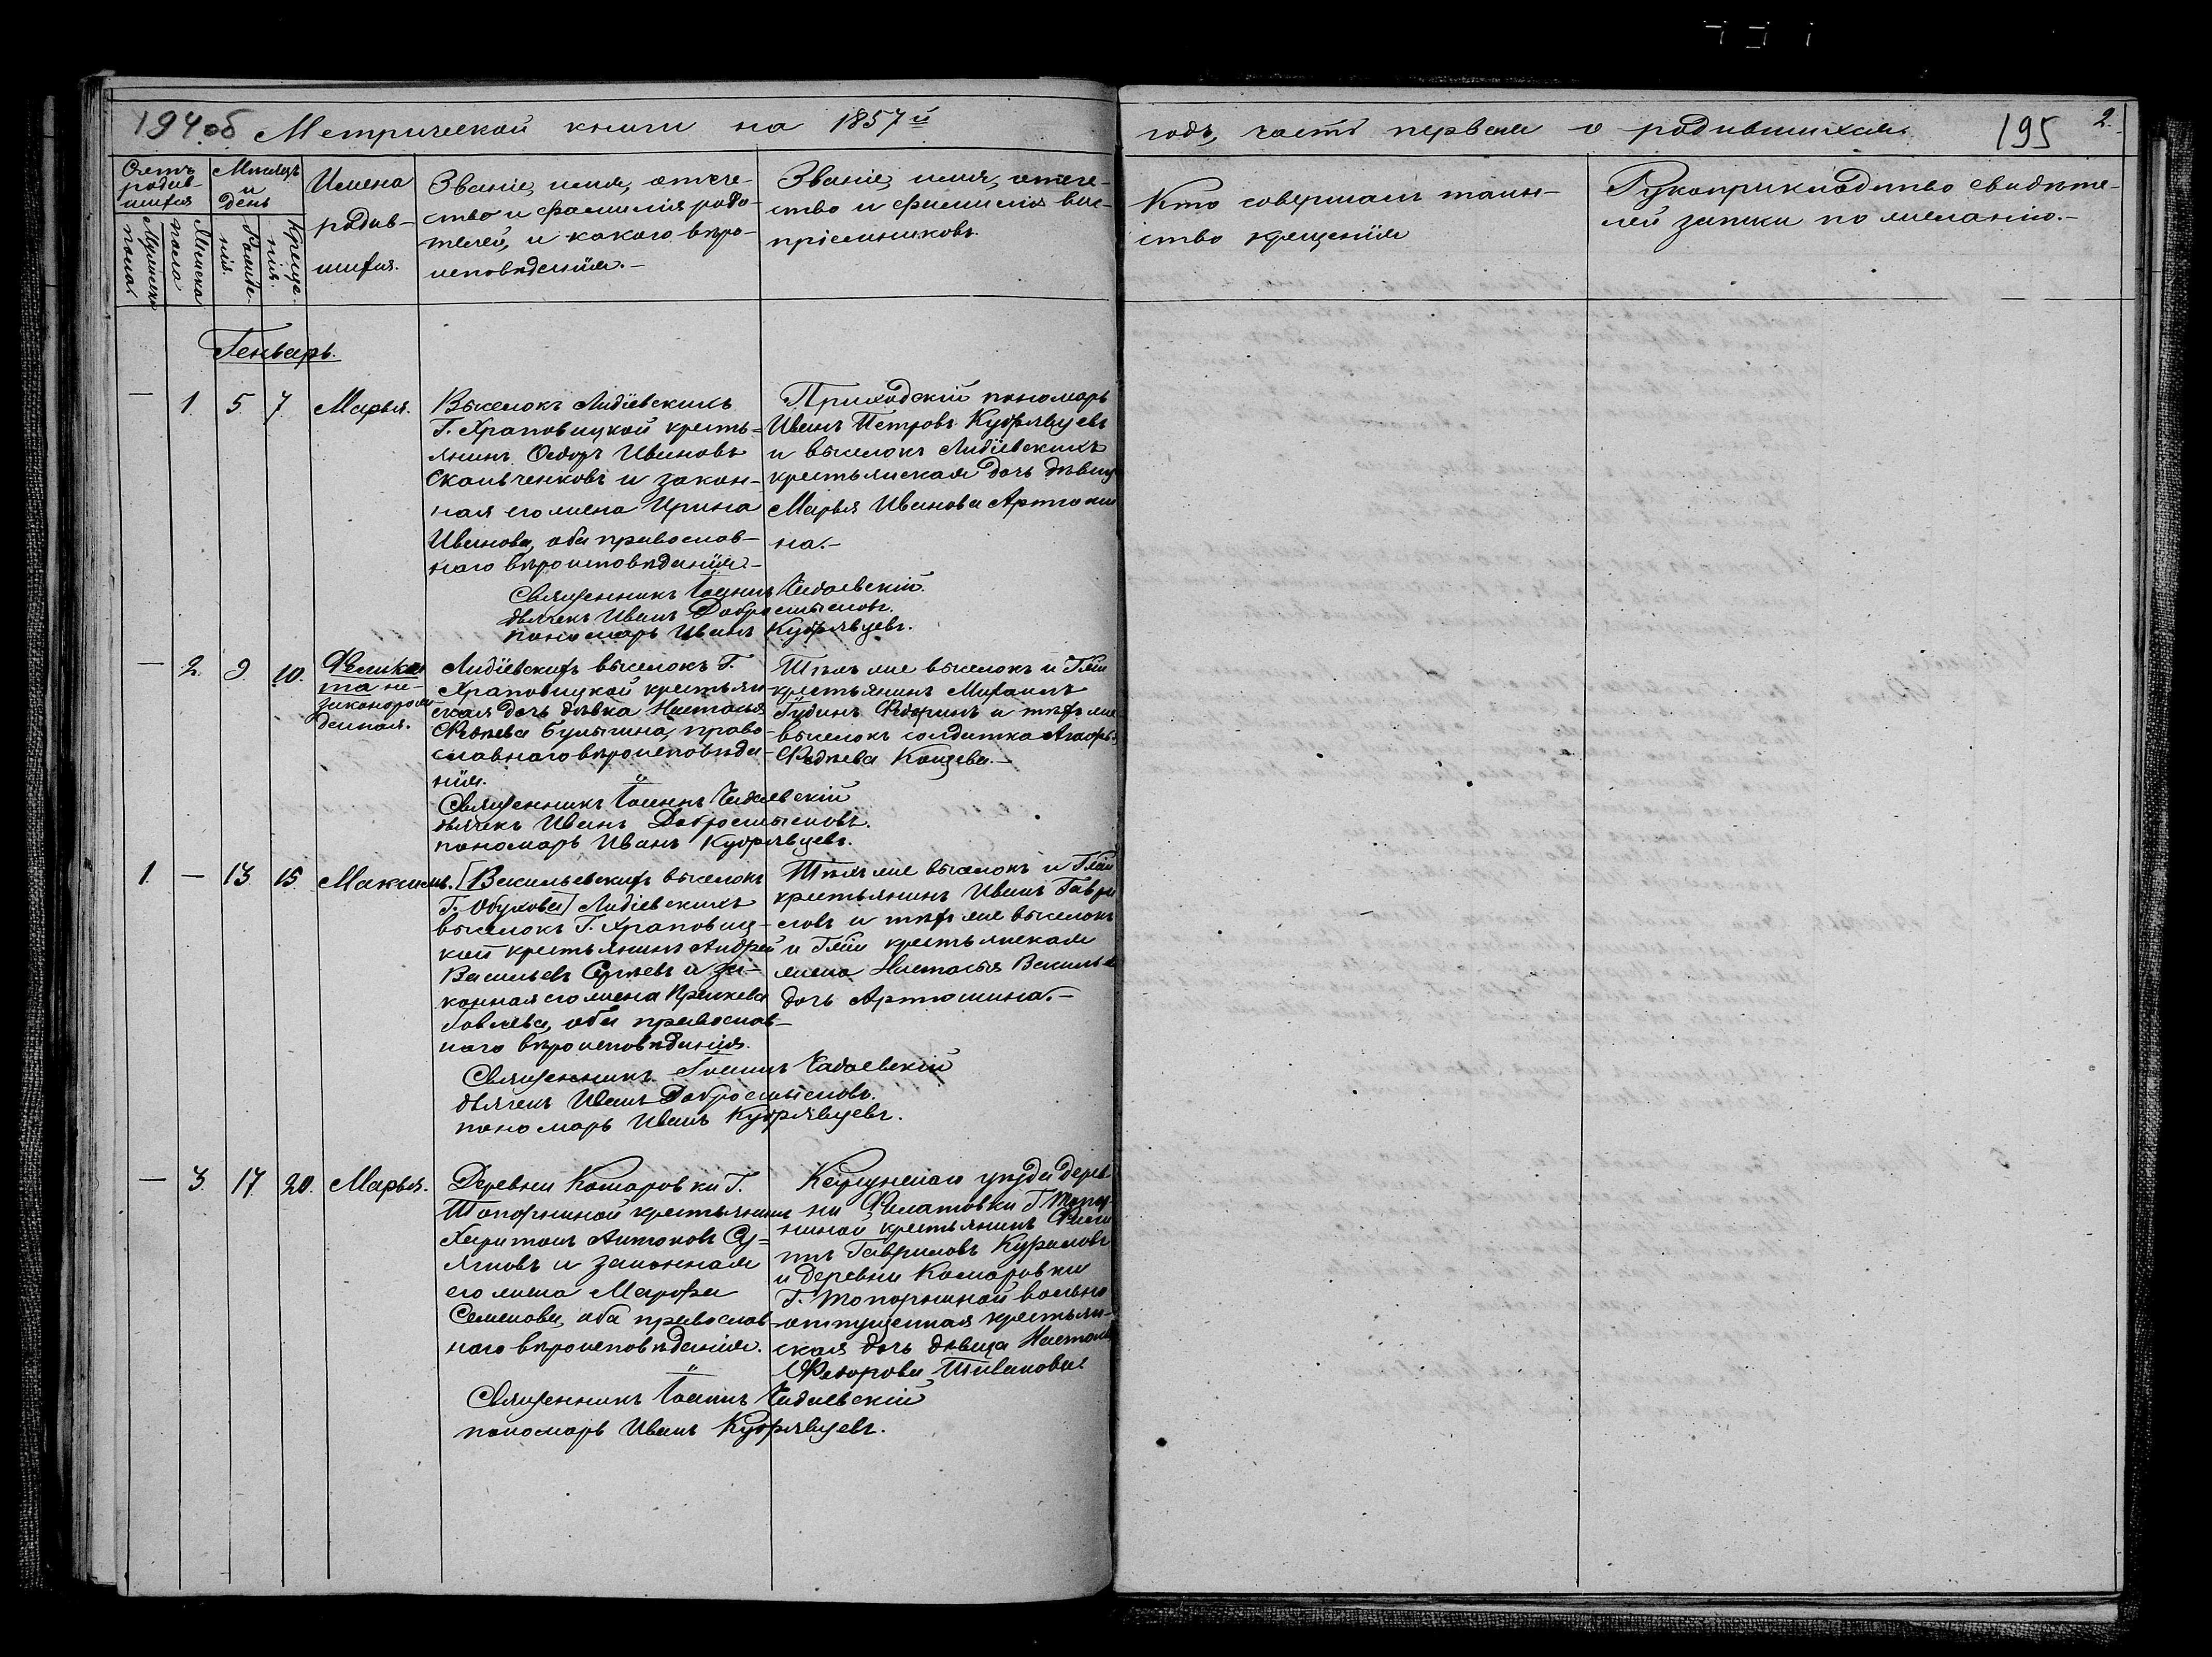 194 об Метрической книги на 1857й
годъ, часть первая о родившихся.
195
2.
Счетъ родив-шихся
Мѣсяцъ и день
Имена родив-шихся.
Мужеска пола.
Женска пола
Рожде-нія.
Креще-нія.
Званіе, имя, отече-
ство и фамилія роди-
телей, и какого вѣро-
исповѣданія.-
Званіе, имя, отече-
ство и фамилія вос-
пріемниковъ.
Кто совершалъ таин-
ство крещенія
Рукоприкладство свидѣте-
лей записи по желанію.-
Генварь.
— 1. 5. 7. Марья.
Выселокъ Лидіевскихъ
Г. Храповицкой кресть-
янинъ Ѳедоръ Ивановъ
и закон-
ная его жена Ирина
Иванова, оба православ-
наго вѣроисповѣданія-
Приходскій пономарь
Иванъ Петровъ Кудрявцевъ
и выселокъ Лидіевскихъ
крестьянская дочь дѣвица
Марья Иванова Артюши
на.-
Священникъ Іоаннъ Чадаевскій.
дьячекъ Иванъ Добросмысловъ.
пономарь Иванъ Кудрявцевъ.
— 2. 9. 10.
не-
законорож
денная.
Лидіевскихъ выселокъ Г.
Храповицкой крестьян-
ская дочь дѣвка Настасья
Ѳадѣева Булыгина, право-
славнаго вѣроисповѣда-
нія.
Тѣхъ же выселокъ и Г-жи
крестьянинъ Михаилъ
и тѣхъ же
выселокъ солдатка
Ѳадѣева
Священникъ Іоаннъ Чадаевскій
дьячекъ Иванъ Добросмысловъ.
пономарь Иванъ Кудрявцевъ.
1. — 13. 15. Максимъ.
[Васильевскихъ выселокъ
Г. Обухова] Лидіевскихъ
выселокъ Г. Храповиц-
кой крестьянинъ Андрей
Васильевъ Сергѣевъ и за-
конная его жена Прасковья
оба православ-
наго вѣроисповѣданія.
Тѣхъ же выселокъ и Г-жи
крестьянинъ Иванъ Гаври
ловъ и тѣхъ же выселокъ
и Г-жи крестьянская
жена Настасья Василье
дочь Артюшина.-
Священникъ Іоаннъ Чадаевскій
дьячекъ Иванъ Добросмысловъ.
пономарь Иванъ Кудрявцевъ.
— 3. 17. 20. Марья.
Деревни Комаровки Г.
Топорниной крестьянинъ
Харитонъ Антоновъ
и законная
его жена Марфа
Семенова, оба православ-
наго вѣроисповѣданія.
уѣзда дерев
ни Филатовки Г. Топор-
ниной крестьянинъ
Гавриловъ
и деревни Комаровки
Г. Топорниной вольно
отпущенная крестьян-
ская дочь дѣвица Настасья
Ѳедорова
Священникъ Іоаннъ Чадаевскій
пономарь Иванъ Кудрявцевъ.